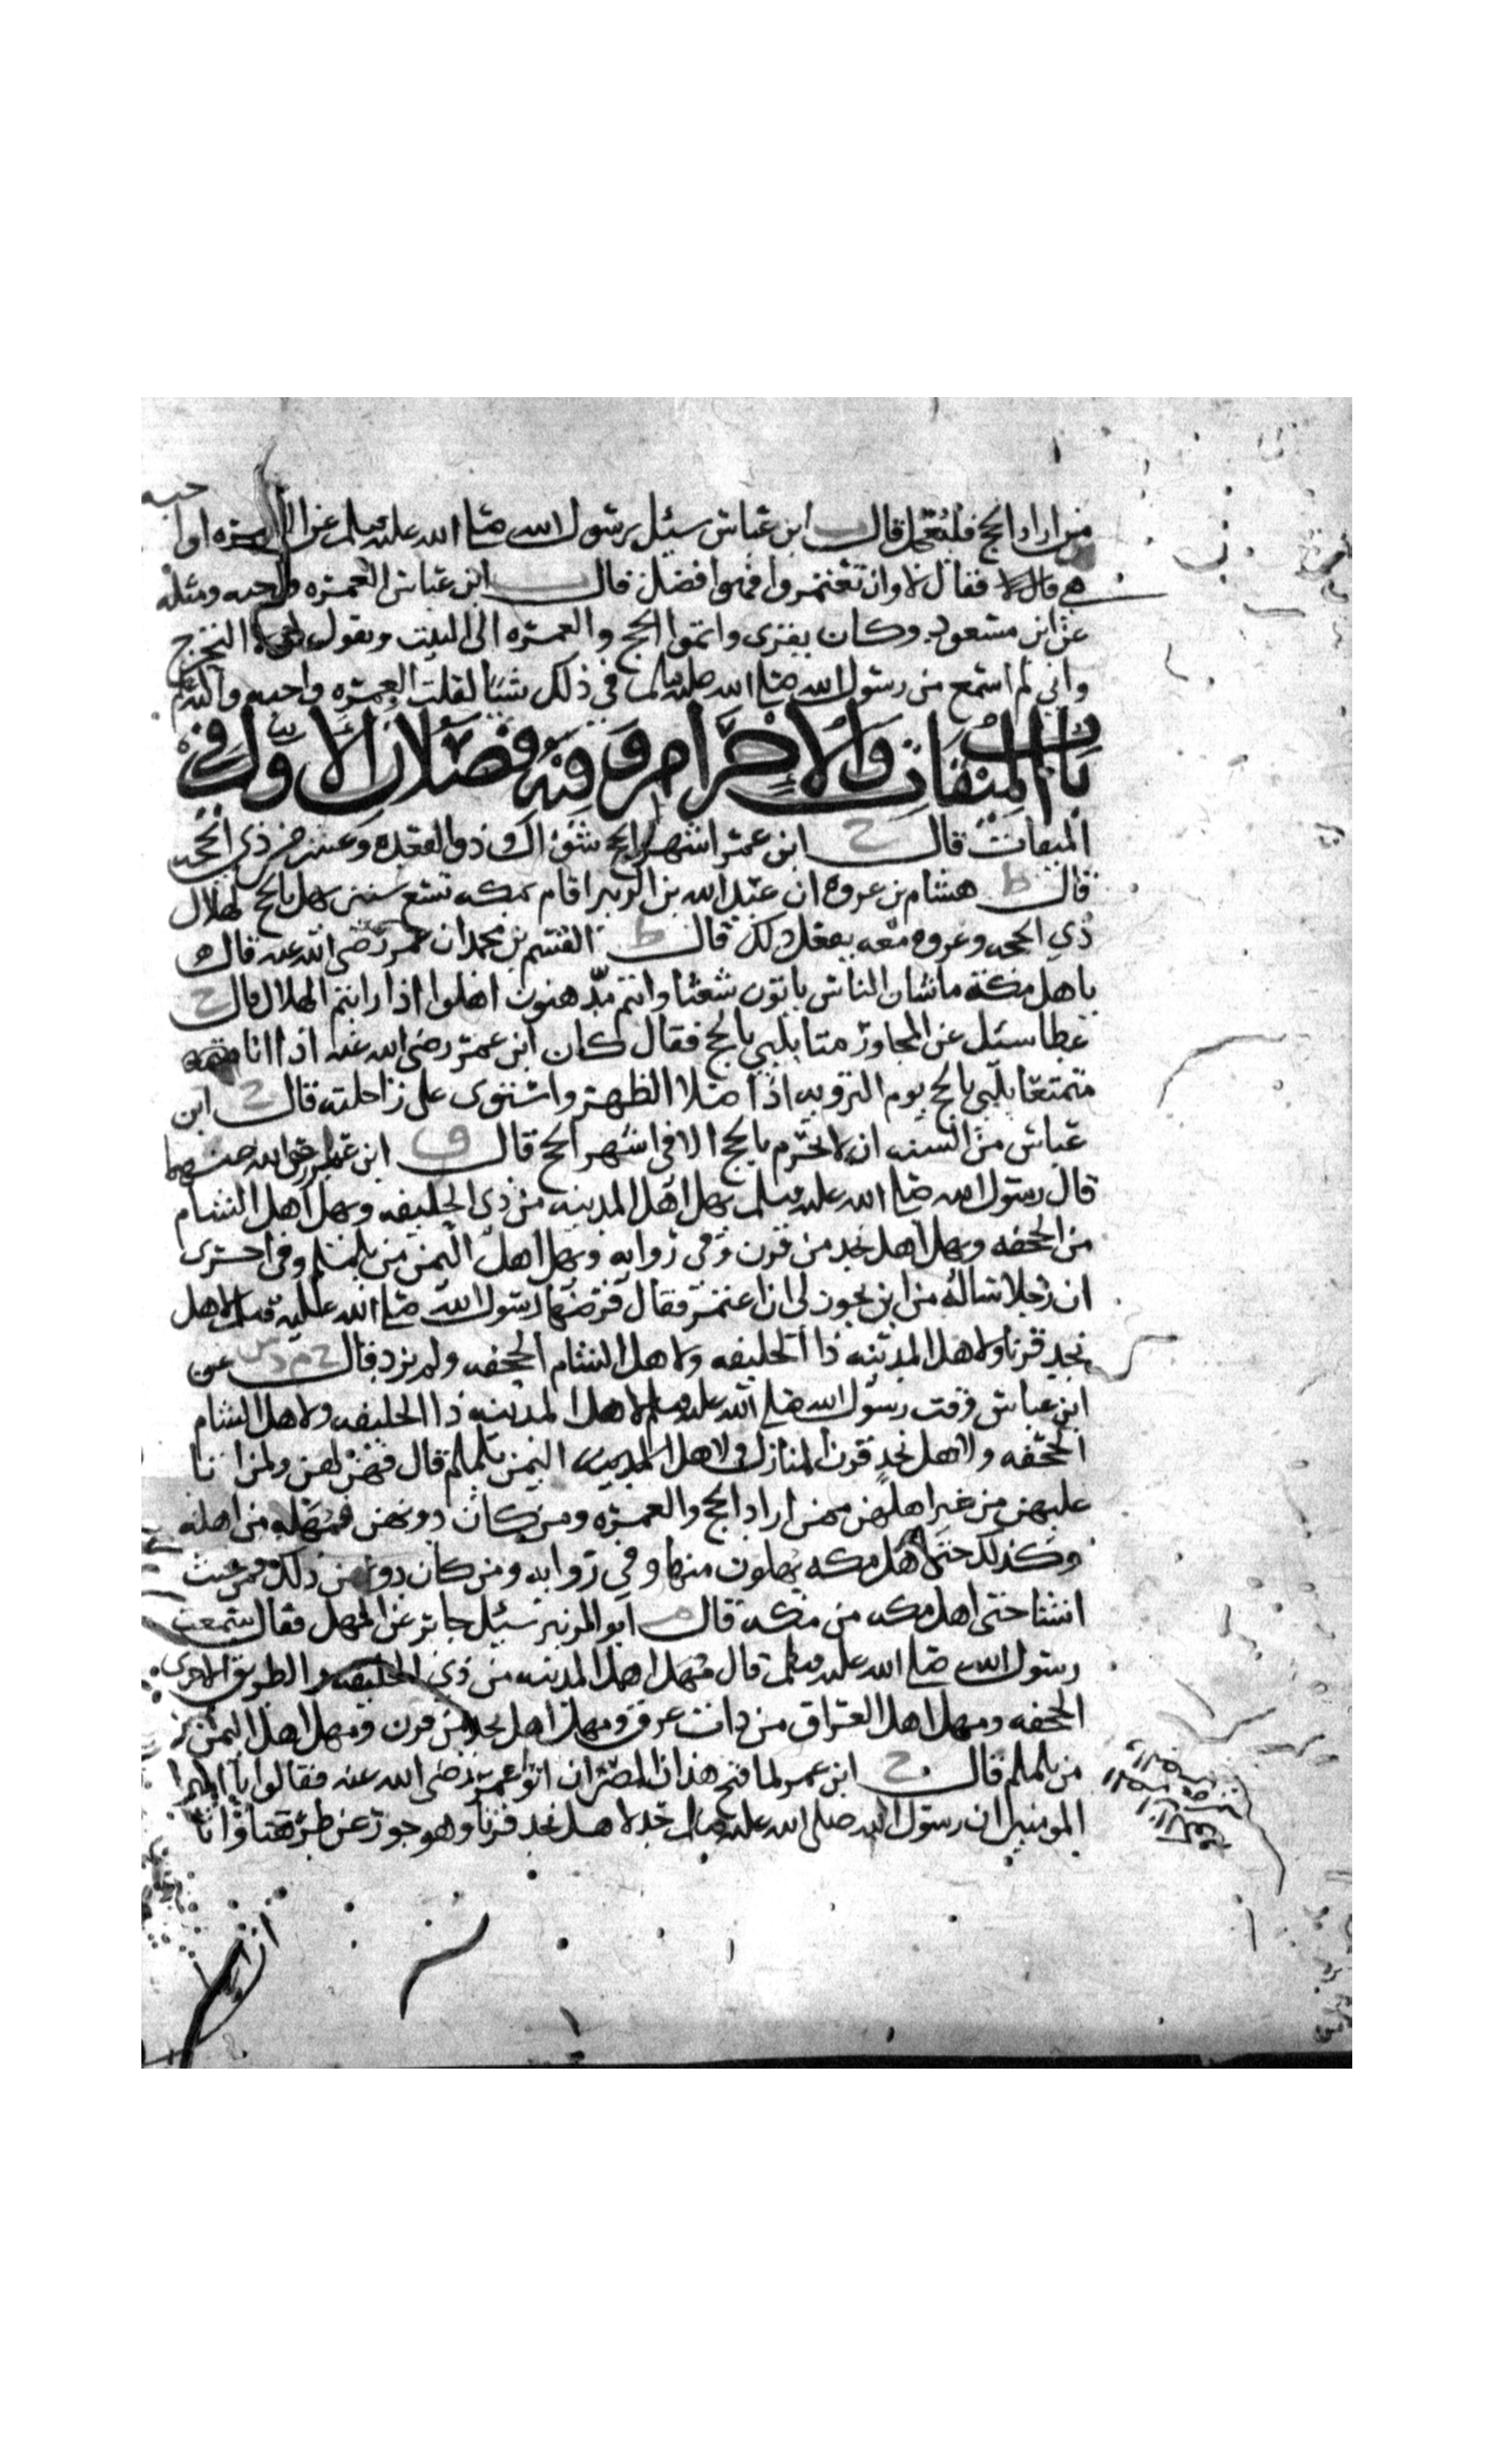 من اراد الحج فليتعجل قال ابن عباس سئل رسول الله صلى الله عليه وسلم عن العمره اوا
هي قال لا فقال لا وان تعتمروا فهوا افضل قال ابن عباس العمره واجبه ومثله
عن ابن مسعود وكان يقرى واتموا الحج والعمره الى البيت ويقول لولا التحرج
واني لم اسمع من رسول الله صلى الله عليه وسلم في ذلك شيا لقلت العمره واجبه والله اعلم
باب الميقات والاحرام وفيه فصلان الاول في
الميقات قال ح ابن عمر اشهر الحج شوال وذوالقعده وعشر من ذي الحجه
قال ط هشام بن عروه ان عبد الله بن الزبير اقام بمكه تسع سنين يهل بالحج لهلال
ذي الحجه وعروه معه يفعل ذلك قال ط القسم بن محمد ان عمر رضي الله عنه قال
ياهل مكة ماشان الناس ياتون شعثا وانتم مدهنون اهلوا اذا رايتم الهلال قال ح
عطا سئل عن المجاور متا يلبي بالحج فقال كان ابن عمر رضي الله عنه اذا اتا
متمتعا يلبي بالحج يوم الترويه اذا صلا الظهر واستوى على راحلته قال ح ابن
عباس من السنه ان لا يحرم بالحج الا في اشهر الحج قال ق ابن عمر رضي الله عنهما
قال رسول الله صلى الله عليه وسلم يهل اهل المدينه من ذي الحليفه ويهل اهل الشام
من الجحفه ويهل اهل نجد من قرن وفي روايه ويهل اهل اليمن من يلملم وفي اخرى
ان رجلا ساله من اين يجوز لي ان اعتمر فقال فرضها رسول الله صلى الله عليه وسلم لاهل
نجد قرنا ولاهل المدينه ذا الحليفه ولاهل الشام الجحفه ولم يزد قال خ م د س عن
ابن عباس وقت رسول الله صلى الله عليه وسلم لاهل المدينه ذا الحليفه ولاهل الشام
الجحفه ولاهل نجد قرن المنازل ولاهل اليمن يلملم قال فهن لهن ولمن اتا
عليهن من غير اهلهن ممن اراد الحج والعمره ومن كان دونهن فمهله من اهله
وكذلك حتى اهل مكه يهلون منها وفي روايه ومن كان دون ذلك فمن حيث
انشا حتى اهل مكه من مكه قال م ابو الزبير سئل جابر عن المهل فقال سمعت
رسول الله صلى الله عليه وسلم قال مهل اهل المدينه من ذي الحليفه والطريق الاخرى
الجحفه ومهل اهل العراق من ذات عرق ومهل اهل نجد من قرن ومهل اهل اليمن
من يلملم قال ح ابن عمر لما فتح هذان المصران اتوا عمر رضي الله عنه فقالوا يا امير
المومنين ان رسول الله صلى الله عليه وسلم حد لاهل نجد قرنا وهو جور عن طريقنا وانا